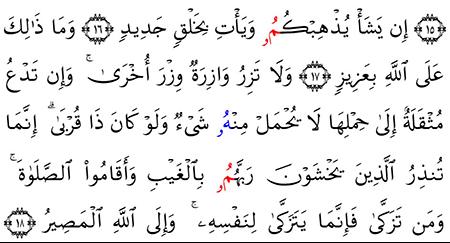 ﴿١٥﴾ إِن يَشَأْ يُذْهِبْكُمُۥ وَيَأْتِ بِخَلْقٍ جَدِيدٍ ﴿١٦﴾ وَمَا ذَٰلِكَ
عَلَى ٱللَّهِ بِعَزِيزٍ ﴿١٧﴾ وَلَا تَزِرُ وَازِرَةٌ وِزْرَ أُخْرَىٰ ۚ وَإِن تَدْعُ
مُثْقَلَةٌ إِلَىٰ حِمْلِهَا لَا يُحْمَلْ مِنْهُۥ شَىْءٌ وَلَوْ كَانَ ذَا قُرْبَىٰٓ ۗ إِنَّمَا
تُنذِرُ ٱلَّذِينَ يَخْشَوْنَ رَبَّهُمُۥ بِٱلْغَيْبِ وَأَقَامُوا۟ ٱلصَّلَوٰةَ ۚ
وَمَن تَزَكَّىٰ فَإِنَّمَا يَتَزَكَّىٰ لِنَفْسِهِۦ ۚ وَإِلَى ٱللَّهِ ٱلْمَصِيرُ ﴿١٨﴾